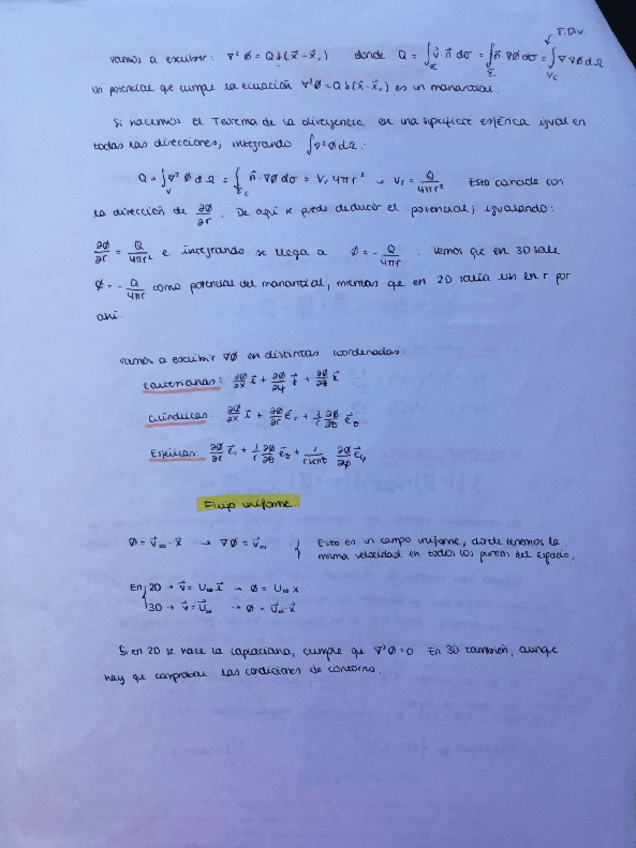 T. Div.
Vamos a escribir: ∇²φ = Qδ(x⃗-x⃗₀) donde Q = ∫_Σc v⃗·n⃗ dσ = ∫_Σc n⃗·∇φ dσ = ∫_Vc ∇·∇φ dΩ
Un potencial que cumple la ecuación ∇²φ = Qδ(x⃗-x⃗₀) es un manantial.
Si hacemos el Teorema de la divergencia en una superficie esférica igual en
todas las direcciones, integrando ∫∇²φ dΩ:
Q = ∫_V ∇²φ dΩ = ∫_Σc n⃗·∇φ dσ = Vr 4πr² → Vr = Q/4πr². Esto coincide con
la dirección de ∂φ/∂r. De aquí se puede deducir el potencial, igualando:
∂φ/∂r = Q/4πr² e integrando se llega a φ = - Q/4πr. Vemos que en 3D sale
φ = - Q/4πr como potencial del manantial, mientras que en 2D salía un ln r por
ahí.
Vamos a escribir ∇φ en distintas coordenadas:
Cartesianas: ∂φ/∂x i⃗ + ∂φ/∂y j⃗ + ∂φ/∂z k⃗
Cilíndricas: ∂φ/∂x i⃗ + ∂φ/∂r e⃗r + 1/r ∂φ/∂θ e⃗θ
Esféricas: ∂φ/∂r e⃗r + 1/r ∂φ/∂θ e⃗θ + 1/rsenθ ∂φ/∂φ e⃗φ
Flujo uniforme.
φ = v⃗∞·x⃗ → ∇φ = v⃗∞ { Esto es un campo uniforme, donde tenemos la
misma velocidad en todos los puntos del espacio.
En { 2D → v⃗ = U∞ i⃗ → φ = U∞ x
3D → v⃗ = U⃗∞ → φ = U⃗∞·x⃗
Si en 2D se hace la laplaciana, cumple que ∇²φ=0 En 3D también, aunque
hay que comprobar las condiciones de contorno.